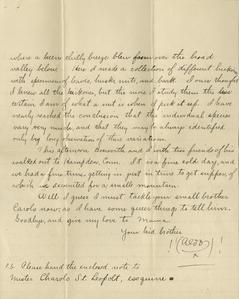 where a keen chilly breeze blew over the broad
valley below. Here I made a collection of different hickory
with specimens of leaves, husks, nuts, and bark. I once thought
I knew all the hickories, but the more I study them the less
certain I am of what a nut is when I pick it up. I have
nearly reached the conclusion that the individual species
vary very much, and that they may be always identified
only by long observation of their variations.
This afternoon Bosworth and I with two friends of his
walked out to Hampden, Conn. It is a fine cold day, and
we had a fine time, getting in just in time to supper, of
which is accounted for a small mountain.
Well I guess I must tackle your small brother
Carolo now, as I have some queer things to tell him.
Goodbye, and give my love to Mama.
Your big brother
! (Aldo) !
P.S. Please hand the enclosed note to
Mister Charolo St. Leopolt, esquire.